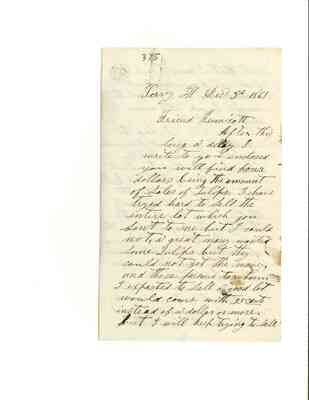 375
Perry Ill Dec 3d 1861
Friend Kennicott
After this
long delay I
write to you enclosed
you will find four
dollars being the amount
of Sales of Tulips I have
tryed hard to sell the
entire lot which you
sent to me but I could
not, a great many wanted
some Tulips but they
could not get the money
and those persons to whom
I expected to sell a good lot
would come with 25 cents
instead of a dollar or more
but I will keep trying to sell